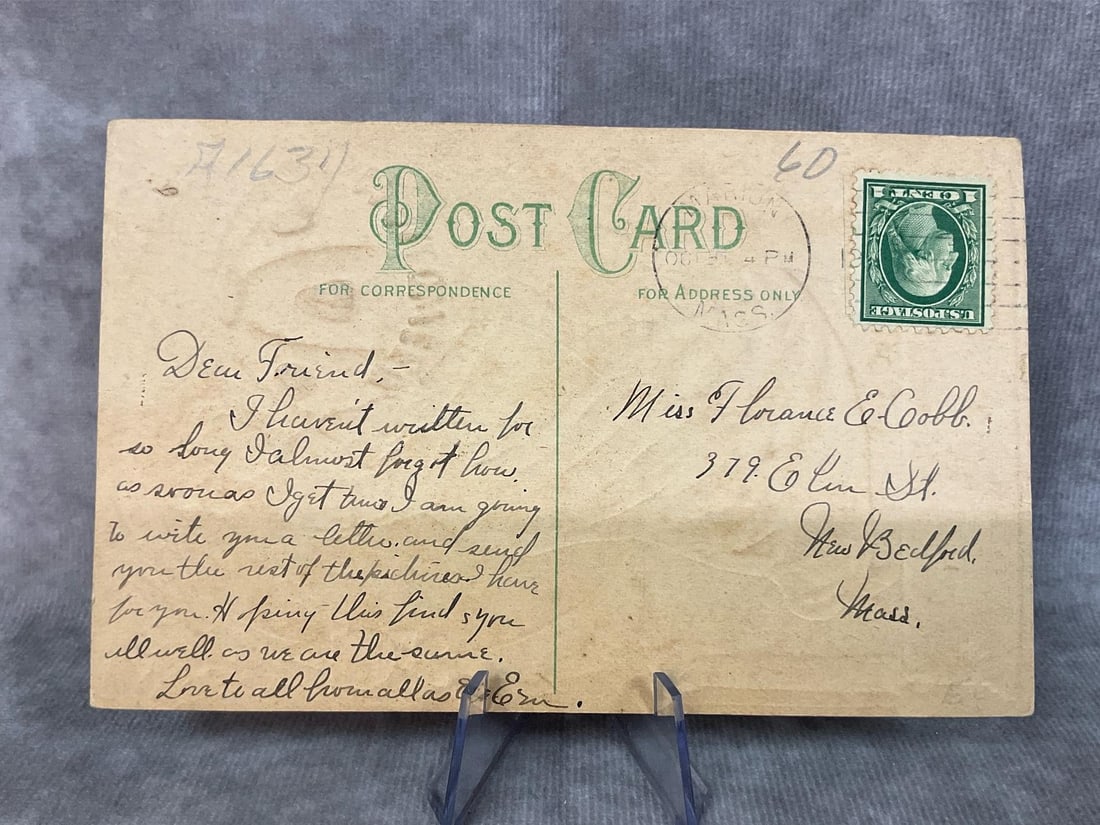 A1634
60
POST CARD
FOR CORRESPONDENCE
FOR ADDRESS ONLY
MARION
OCT 31 4 PM
MASS.
1 CENT 1
U.S. POSTAGE
Dear Friend,-
I haven't written for
so long I almost forgot how.
as soon as I get time I am going
to write you a letter and send
you the rest of the pictures I have
for you. Hoping this finds you
all well as we are the same.
Love to all from all as Ever Em.
Miss Florance E. Cobb.
379. Elm St.
New Bedford.
Mass.